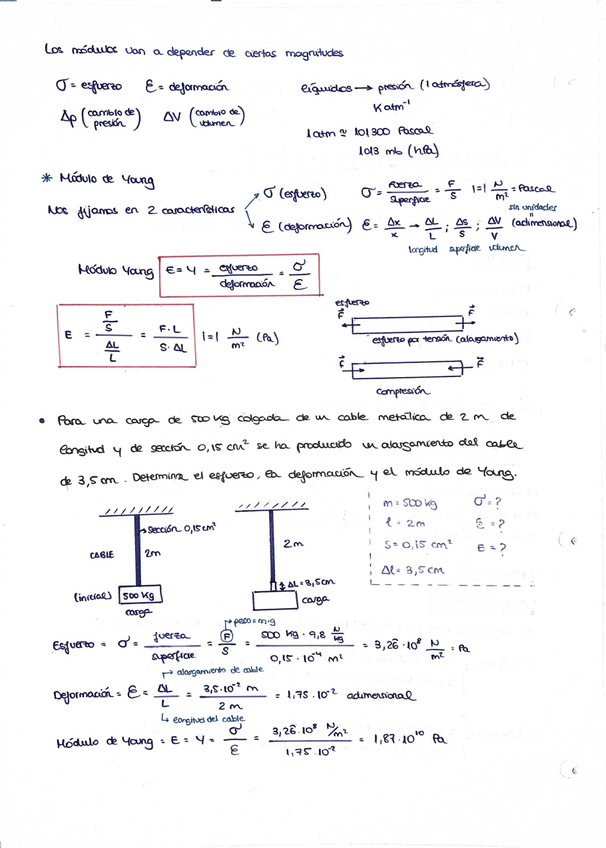 Los módulos van a depender de ciertas magnitudes
σ = esfuerzo   ε = deformación
Δp (cambio de presión)   ΔV (cambio de volumen)
Líquidos → presión (1 atmósfera)
K atm⁻¹
1 atm ≃ 101300 Pascal
1013 mb (hPa)
* Módulo de Young
Nos fijamos en 2 características
σ (esfuerzo)   σ = Fuerza / Superficie = F / S   |=| N / m² = Pascal
ε (deformación)   ε = Δx / x → ΔL / L ; ΔS / S ; ΔV / V   sin unidades (adimensional)
longitud   superficie   volumen
Módulo Young   E = Y = esfuerzo / deformación = σ / ε
E = (F / S) / (ΔL / L) = F · L / S · ΔL   |=| N / m² (Pa)
esfuerzo
F   F
esfuerzo por tensión (alargamiento)
F   F
compresión
• Para una carga de 500 kg colgada de un cable metálica de 2 m de
longitud y de sección 0,15 cm² se ha producido un alargamiento del cable
de 3,5 cm. Determina el esfuerzo, la deformación y el módulo de Young.
sección 0,15 cm²
CABLE   2m
(inicial)   500 kg
carga
2m
ΔL = 3,5cm
carga
m = 500 kg   σ = ?
l = 2m   ε = ?
S = 0,15 cm²   E = ?
Δl = 3,5 cm
peso = m·g
Esfuerzo = σ = fuerza / superficie = F / S = 500 kg · 9,8 N/kg / 0,15 · 10⁻⁴ m² = 3,26 · 10⁸ N / m² = Pa
alargamiento de cable
Deformación = ε = ΔL / L = 3,5 · 10⁻² m / 2 m = 1,75 · 10⁻² adimensional
longitud del cable
Módulo de Young = E = Y = σ / ε = 3,26 · 10⁸ N/m² / 1,75 · 10⁻² = 1,87 · 10¹⁰ Pa